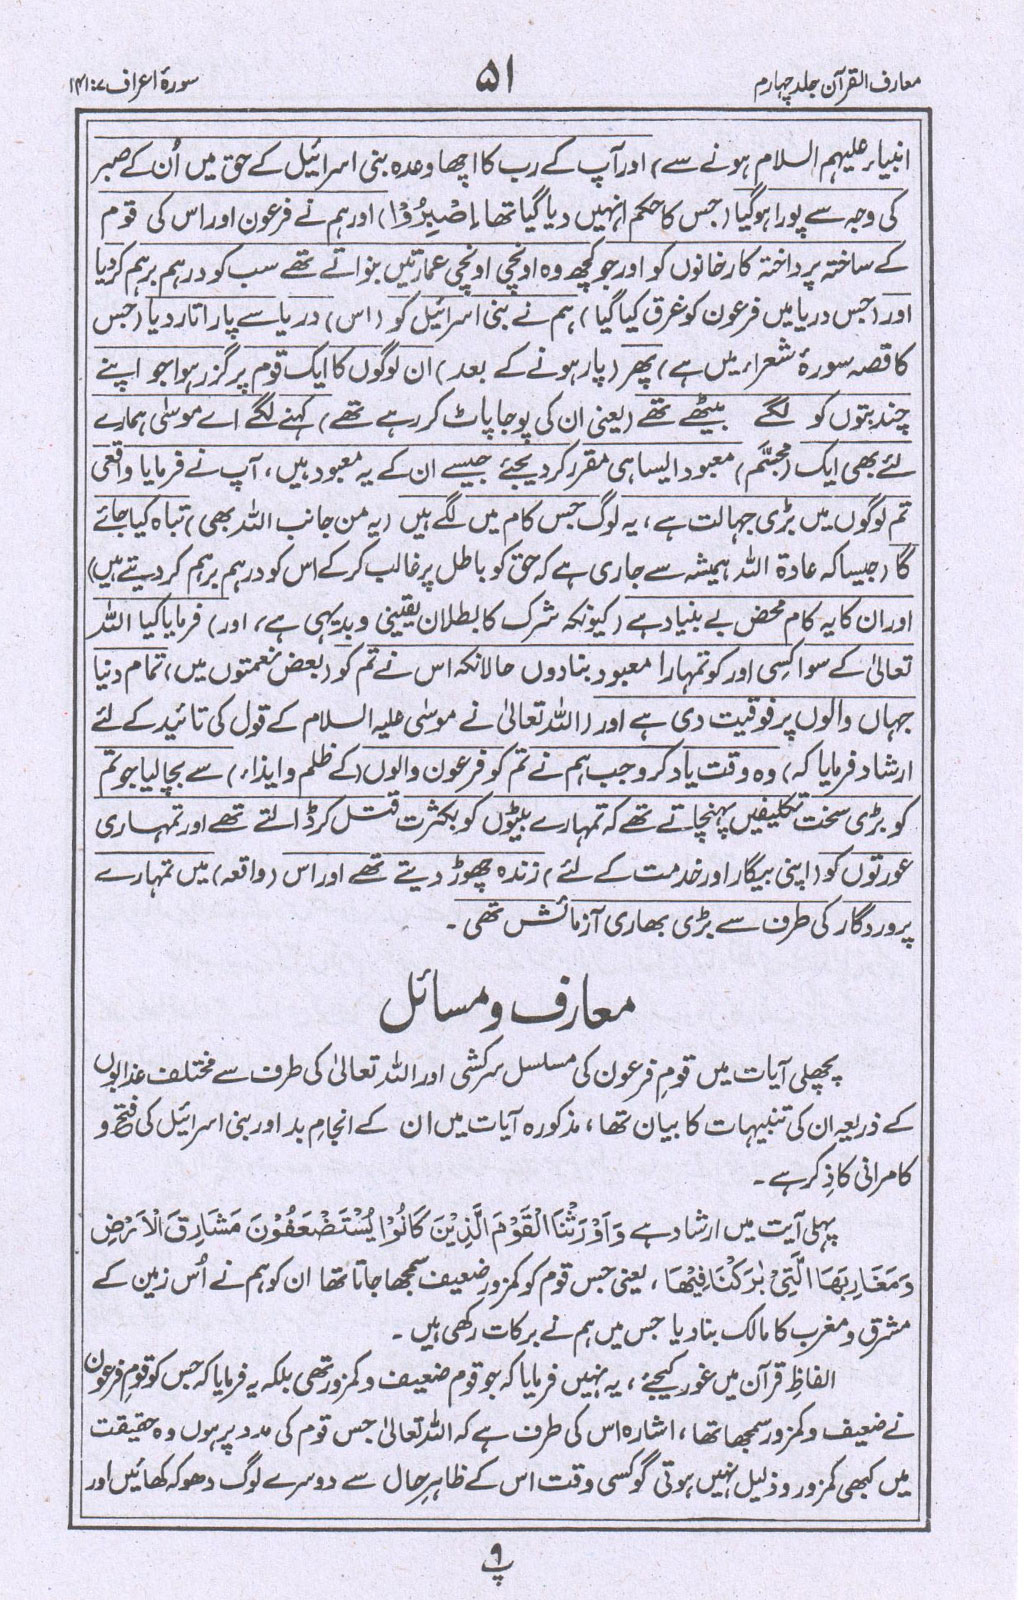 معارف القرآن جلد چہارم
۵۱
سورۂ اعراف ۷ : ۱۴۱
انبیاء علیہم السلام ہونے سے) اور آپ کے رب کا اچھا وعدہ بنی اسرائیل کے حق میں اُن کے صبر
کی وجہ سے پورا ہوگیا (جس کا حکم انہیں دیا گیا تھا اِصْبِرُوْا) اور ہم نے فرعون اور اس کی قوم
کے ساختہ پرداختہ کارخانوں کو اور جو کچھ وہ اونچی اونچی عمارتیں بنواتے تھے سب کو درہم برہم کردیا
اور (جس دریا میں فرعون کو غرق کیا گیا) ہم نے بنی اسرائیل کو (اس) دریا سے پار اتار دیا (جس
کا قصہ سورۂ شعراء میں ہے) پھر (پار ہونے کے بعد) ان لوگوں کا ایک قوم پر گزر ہوا جو اپنے
چند بتوں کو لگے بیٹھے تھے (یعنی ان کی پوجا پاٹ کر رہے تھے) کہنے لگے اے موسیٰ ہمارے
لئے بھی ایک (مجسَّم) معبود ایسا ہی مقرر کردیجئے جیسے ان کے یہ معبود ہیں، آپ نے فرمایا واقعی
تم لوگوں میں بڑی جہالت ہے، یہ لوگ جس کام میں لگے ہیں (یہ من جانب اللہ بھی) تباہ کیا جائے
گا (جیسا کہ عادۃ اللہ ہمیشہ سے جاری ہے کہ حق کو باطل پر غالب کرکے اس کو درہم برہم کر دیتے ہیں)
اور ان کا یہ کام محض بے بنیاد ہے (کیونکہ شرک کا بطلان یقینی و بدیہی ہے، اور) فرمایا کیا اللہ
تعالیٰ کے سوا کسی اور کو تمہارا معبود بنادوں حالانکہ اس نے تم کو (بعض نعمتوں میں) تمام دنیا
جہاں والوں پر فوقیت دی ہے اور (اللہ تعالیٰ نے موسیٰ علیہ السلام کے قول کی تائید کے لئے
ارشاد فرمایا کہ) وہ وقت یاد کرو جب ہم نے تم کو فرعون والوں (کے ظلم و ایذاء) سے بچالیا جو تم
کو بڑی سخت تکلیفیں پہنچاتے تھے کہ تمہارے بیٹوں کو بکثرت قتل کر ڈالتے تھے اور تمہاری
عورتوں کو (اپنی بیگار اور خدمت کے لئے) زندہ چھوڑ دیتے تھے اور اس (واقعہ) میں تمہارے
پروردگار کی طرف سے بڑی بھاری آزمائش تھی۔
معارف و مسائل
پچھلی آیات میں قومِ فرعون کی مسلسل سرکشی اور اللہ تعالیٰ کی طرف سے مختلف عذابوں
کے ذریعہ ان کی تنبیہات کا بیان تھا، مذکورہ آیات میں ان کے انجامِ بد اور بنی اسرائیل کی فتح و
کامرانی کا ذِکر ہے۔
پہلی آیت میں ارشاد ہے وَاَوْرَثْنَا الْقَوْمَ الَّذِیْنَ کَانُوْا یُسْتَضْعَفُوْنَ مَشَارِقَ الْاَرْضِ
وَمَغَارِبَهَا الَّتِیْ بٰرَکْنَا فِیْهَا، یعنی جس قوم کو کمزور ضعیف سمجھا جاتا تھا ان کو ہم نے اُس زمین کے
مشرق و مغرب کا مالک بنادیا جس میں ہم نے برکات رکھی ہیں۔
الفاظِ قرآن میں غور کیجئے، یہ نہیں فرمایا کہ جو قوم ضعیف و کمزور تھی بلکہ یہ فرمایا کہ جس کو قومِ فرعون
نے ضعیف و کمزور سمجھا تھا، اشارہ اس کی طرف ہے کہ اللہ تعالیٰ جس قوم کی مدد پر ہوں وہ حقیقت
میں کبھی کمزور و ذلیل نہیں ہوتی گو کسی وقت اس کے ظاہرِ حال سے دوسرے لوگ دھوکہ کھائیں اور
پ ۹